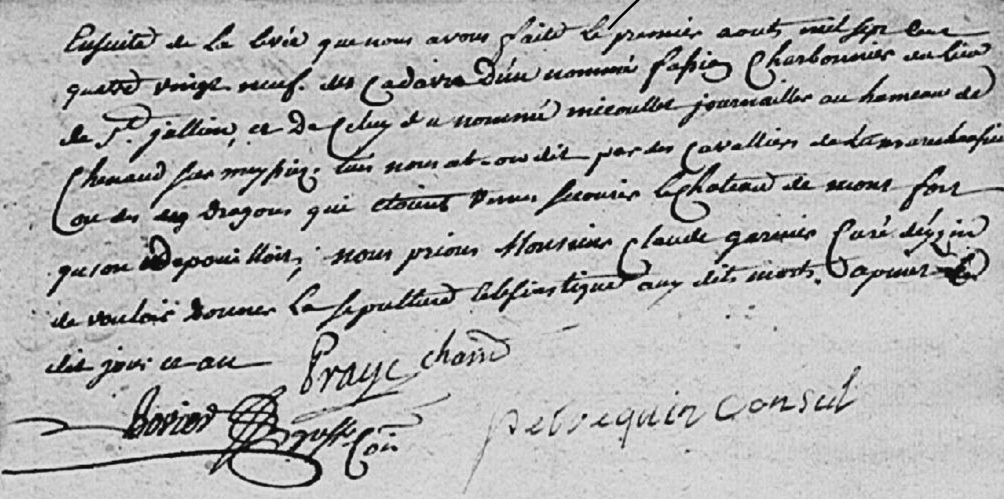 Ensuite de la levée que nous avons faite le premier aoust mil sept cent
quatre vingt neuf. des Cadavre d'un nommé fassien Charbonnier du lieu
de St. jallien, et De Celuy du nommé micoullet journaillier au hameau de
Chenaud sur meypin. tués nous at-on dit par des Cavalliers de La marechaussée
ou des dragons qui etoient venus secourir le Chateau de mont fort
qu'on depouilloit, nous prions Monsieur Claude garnier Curé d'eyzin
de vouloir donner La sepulture eclesiastique aux dits morts. a pinet
dit jour et an Praye chan
Bovier Brosse Con pelvequin Consul